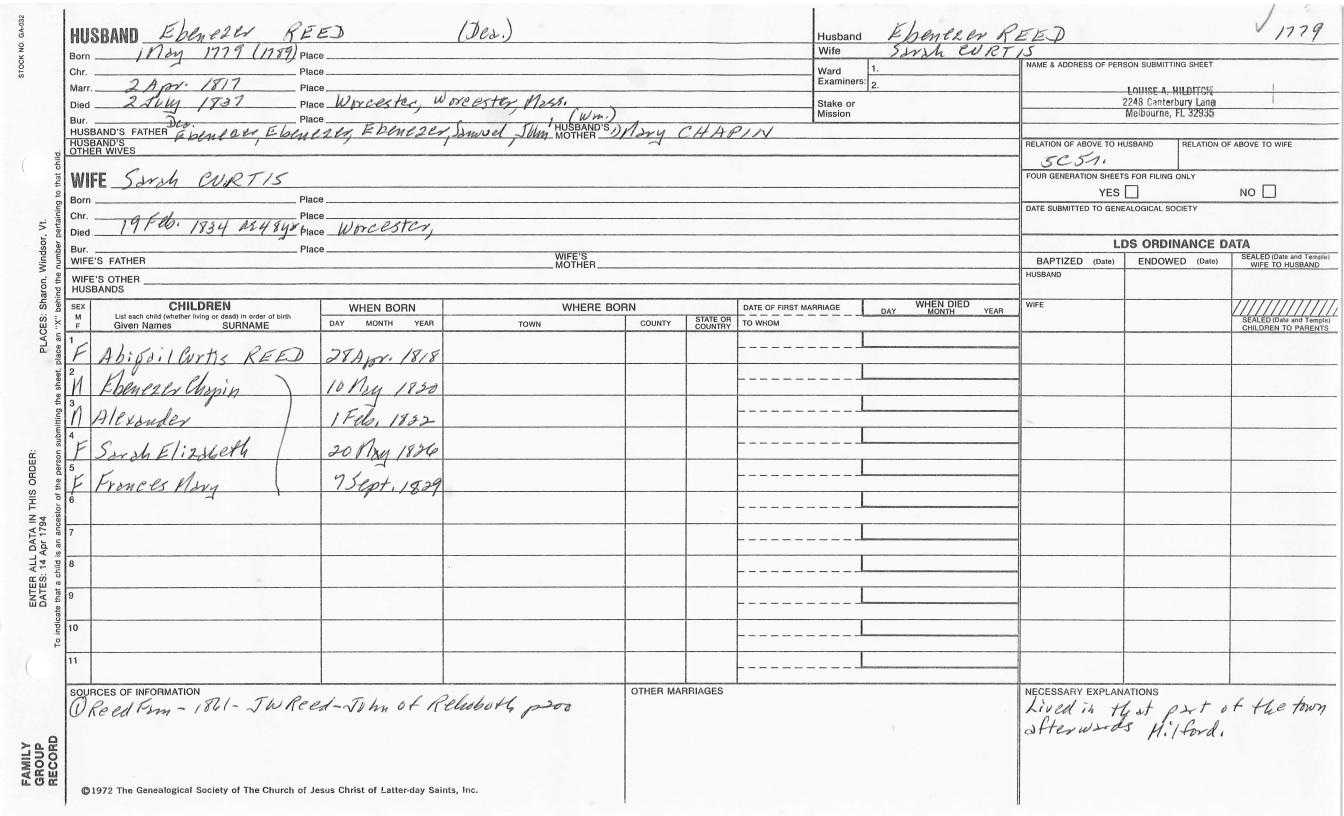 STOCK NO. GA-032
HUSBAND Ebenezer REED (Dea.)
Born 1 May 1779 (1789) Place
Chr. Place
Marr. 2 Apr. 1817 Place
Died 2 July 1837 Place Worcester, Worcester, Mass.
Bur. Place
HUSBAND'S FATHER Dea. Ebenezer, Ebenezer, Ebenezer, Samuel, John, (Wm.) HUSBAND'S MOTHER Mary CHAPIN
HUSBAND'S OTHER WIVES
WIFE Sarah CURTIS
Born Place
Chr. Place
Died 19 Feb. 1834 ae 48 yr. Place Worcester,
Bur. Place
WIFE'S FATHER WIFE'S MOTHER
WIFE'S OTHER HUSBANDS
Husband Ebenezer REED 1779
Wife Sarah CURTIS
Ward Examiners: 1.
2.
Stake or Mission
NAME & ADDRESS OF PERSON SUBMITTING SHEET
LOUISE A. HILDITCH
2248 Canterbury Lane
Melbourne, FL 32935
RELATION OF ABOVE TO HUSBAND RELATION OF ABOVE TO WIFE
5C5r.
FOUR GENERATION SHEETS FOR FILING ONLY
YES NO
DATE SUBMITTED TO GENEALOGICAL SOCIETY
LDS ORDINANCE DATA
BAPTIZED (Date) ENDOWED (Date) SEALED (Date and Temple) WIFE TO HUSBAND
HUSBAND
WIFE
SEALED (Date and Temple) CHILDREN TO PARENTS
SEX M F
CHILDREN
List each child (whether living or dead) in order of birth
Given Names SURNAME
WHEN BORN
DAY MONTH YEAR
WHERE BORN
TOWN COUNTY STATE OR COUNTRY
DATE OF FIRST MARRIAGE
TO WHOM
WHEN DIED
DAY MONTH YEAR
1 F Abigail Curtis REED 28 Apr. 1818
2 M Ebenezer Chapin 10 May 1820
3 M Alexander 1 Feb. 1822
4 F Sarah Elizabeth 20 May 1826
5 F Frances Mary 7 Sept. 1829
6
7
8
9
10
11
SOURCES OF INFORMATION
① Reed Fam - 1861 - JW Reed - John of Rehoboth p200
OTHER MARRIAGES
NECESSARY EXPLANATIONS
Lived in that part of the town
afterwards Milford.
©1972 The Genealogical Society of The Church of Jesus Christ of Latter-day Saints, Inc.
FAMILY
GROUP
RECORD
ENTER ALL DATA IN THIS ORDER:
DATES: 14 Apr 1794 PLACES: Sharon, Windsor, Vt.
To indicate that a child is an ancestor of the person submitting the sheet, place an "X" behind the number pertaining to that child.